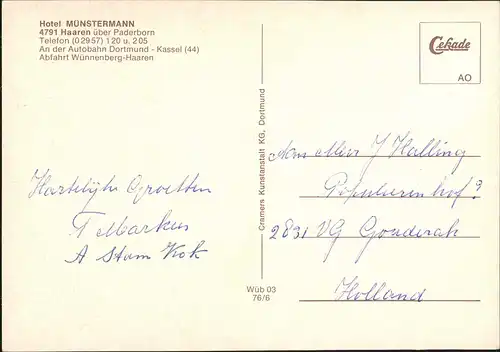 Hotel MÜNSTERMANN
4791 Haaren über Paderborn
Telefon (0 29 57) 1 20 u. 2 05
An der Autobahn Dortmund - Kassel (44)
Abfahrt Wünnenberg-Haaren
Cekade
AO
Cramers Kunstanstalt KG, Dortmund
Hartelijke Groetten
T Markus
A Stam Kok
J Halling
Populierenhof
2831 VG Gouderak
Holland
Wüb 03
76/6